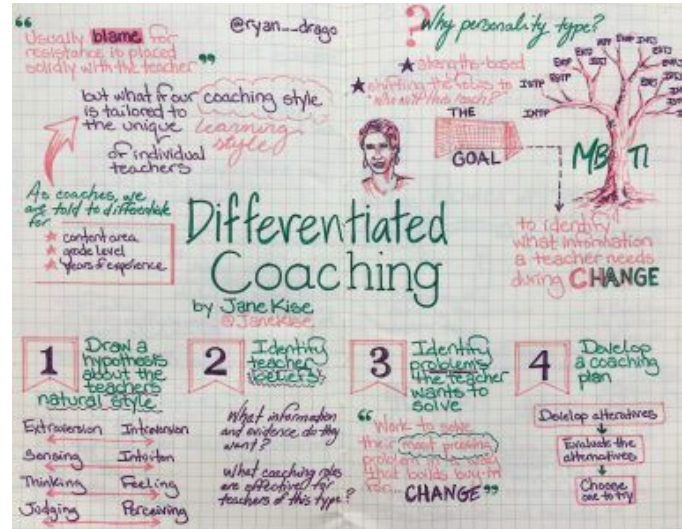 @ryan__drago
“
Usually blame for
resistance is placed
solidly with the teacher ”
but what if our coaching style
is tailored to
the unique learning
style
of individual
teachers
As coaches, we
are told to differentiate
for
content area
grade level
years of experience
? Why personality type?
strengths-based
shifting the focus to
THE
GOAL
MBTI
ISTP
INTP
to identify
what information
a teacher needs
during CHANGE
Differentiated
Coaching
by Jane Kise
@JaneKise
1 Draw a
hypothesis
about the
teachers
natural style
Extraversion Introversion
Sensing Intuiton
Thinking Feeling
Judging Perceiving
2 Identify
teacher
beliefs
What information
and evidence do they
want?
What coaching roles
are effective for
teachers of this type?
3 Identify
problems
the teacher
wants to
solve
“ Work to solve
their most pressing
problem in a way
that builds buy-in
for... CHANGE ”
4 Develop
a coaching
plan
Develop alteratives
Evaluate the
alternatives
Choose
one to try